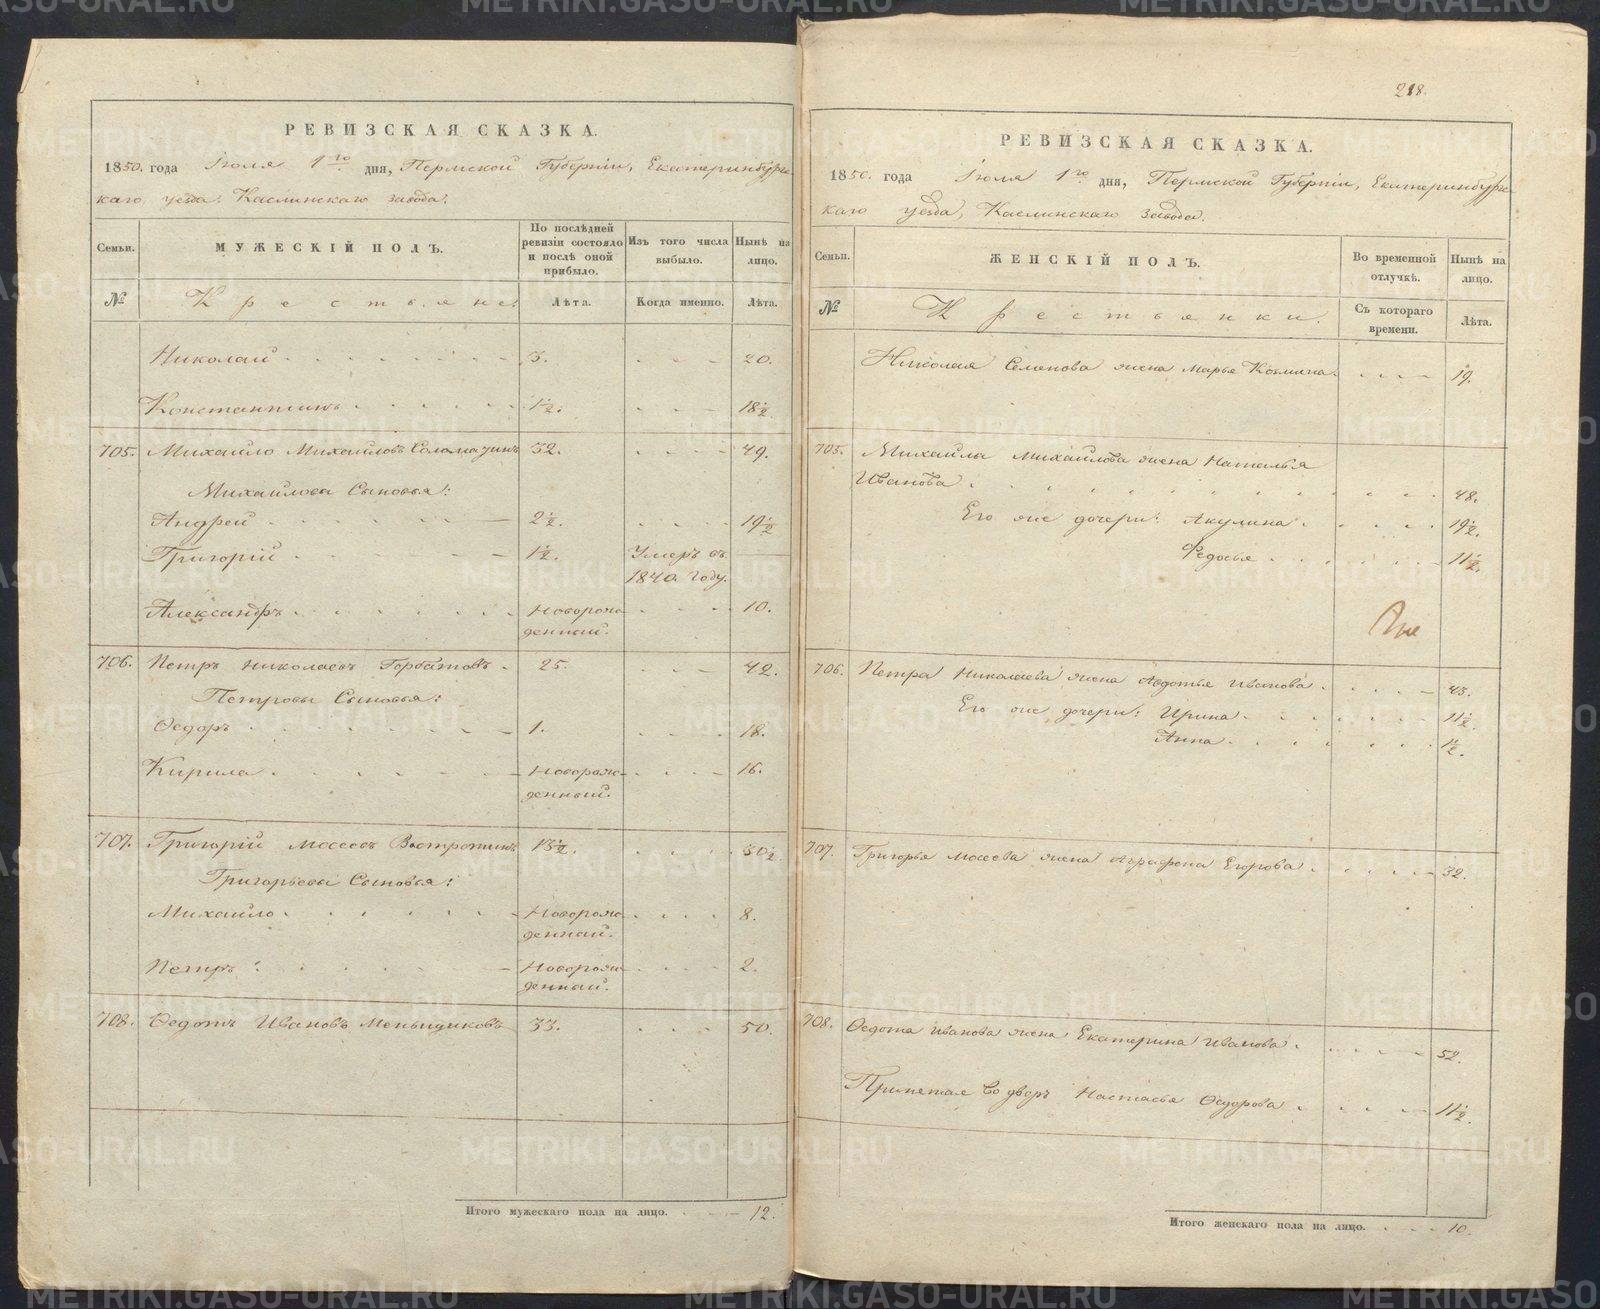 РЕВИЗСКАЯ СКАЗКА.
1850. года Іюля 1го дня, Пермской Губерніи, Екатеринбургс-
каго уезда, Каслинскаго завода.
Семьи. МУЖЕСКІЙ ПОЛЪ. По послѣдней ревизіи состояло и послѣ оной прибыло. Изъ того числа выбыло. Нынѣ на лицо.
№ Крестьяне: Лѣта. Когда именно. Лѣта.
Николай 3. 20.
Константинъ 1½. 18½
705. Михайло Михайловъ Соломатинъ 32. 49.
Михайлова Сыновья:
Андрей 2½. 19½
Григорій 1½. Умеръ въ
1840. году.
Александръ Новорож- 10.
денный.
706. Петръ Николаевъ Горбатовъ 25. 42.
Петровы Сыновья:
Ѳедоръ 1. 18.
Кирила Новорож- 16.
денный.
707. Григорій Мосеевъ Востротинъ 13½. 30½
Григорьевы Сыновья:
Михайло Новорож- 8.
денный.
Петръ Новорож- 2.
денный.
708. Ѳедотъ Ивановъ Меньщиковъ 33. 50.
Итого мужескаго пола на лицо. 12.
218.
РЕВИЗСКАЯ СКАЗКА.
1850. года Іюля 1го дня, Пермской Губерніи, Екатеринбургс-
каго уезда, Каслинскаго завода.
Семьи. ЖЕНСКІЙ ПОЛЪ. Во временной отлучкѣ. Нынѣ на лицо.
№ Крестьянки. Съ котораго времени. Лѣта.
Николая Семенова жена Марья Козмина 19.
705. Михайла Михайлова жена Наталья
Иванова 48.
Его же дочери: Акулина 19½
Федосья 11½.
706. Петра Николаева жена Авдотья Иванова 43.
Его же дочери: Ирина 11½
Анна 1½.
707. Григорья Мосеева жена Аграфена Егорова 32.
708. Ѳедота Иванова жена Екатерина Иванова 52.
Принятая во дворъ Настасья Ѳедорова 11½.
Итого женскаго пола на лицо. 10.
METRIKI.GASO-URAL.RU